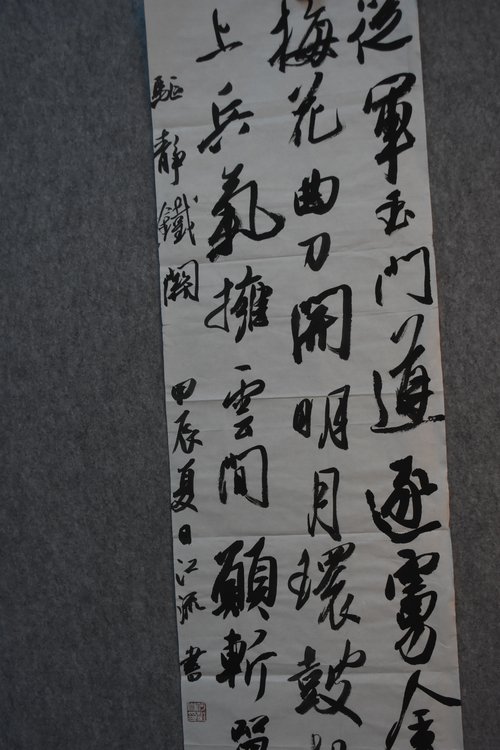 從軍玉門道逐虜金
梅花曲刀開明月環鼓
上兵氣擁雲間願斬
驅靜鐵關
甲辰夏日江流書